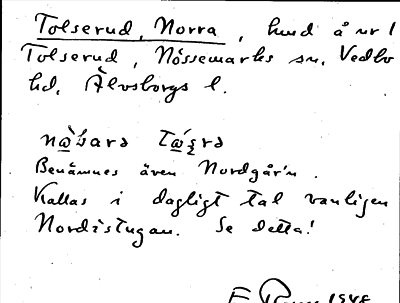 Tolserud, Norra, hmd å nr 1
Tolserud, Nössemarks sn, Vedbo
hd, Älvsborgs l.
Benämnes även Nordgår'n.
Kallas i dagligt tal vanligen
Nordistugan. Se detta!
1948